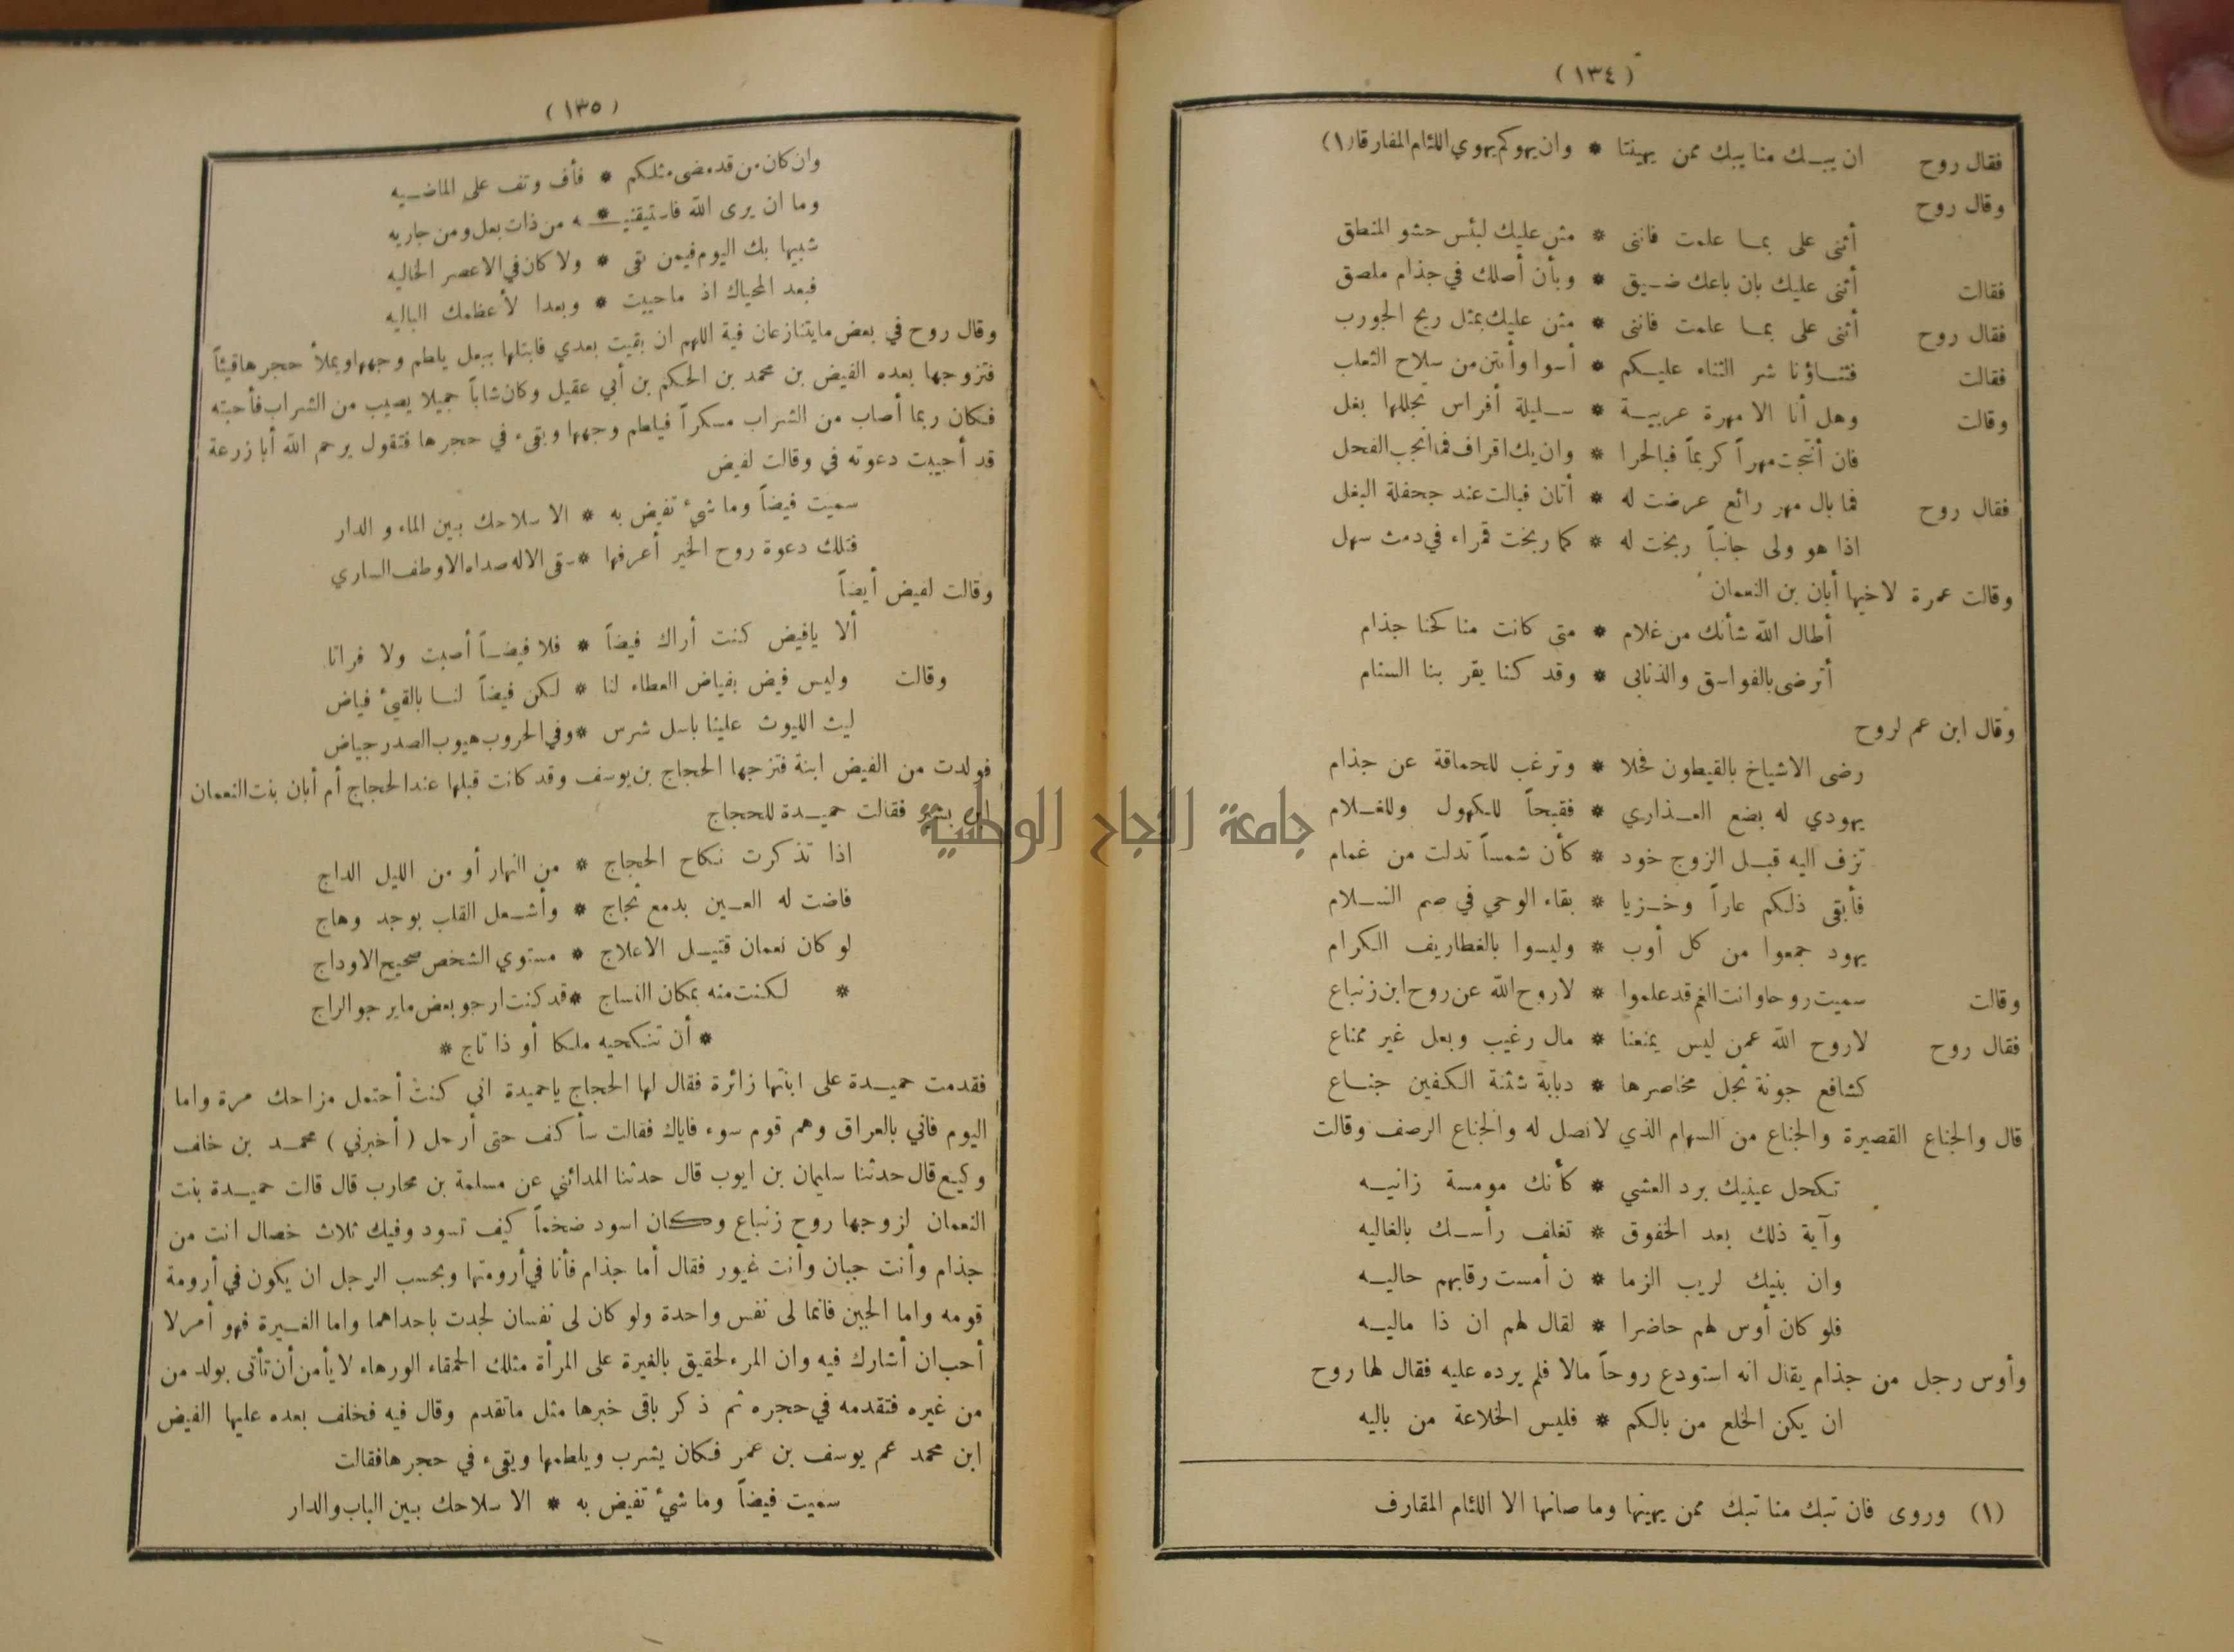 (١٣٤)
فقال روح ان يبك منا يبك ممن يهيننا * وان يهوكم يهوي اللئام المفارقا(١)
وقال روح
أثنى على بما علمت فاننى * مثن عليك لبئس حشو المنطق
فقالت أثنى عليك بان باعك ضيق * وبأن أصلك في جذام ملصق
فقال روح أثنى على بما علمت فاننى * مثن عليك بمثل ريح الجورب
فقالت فثناؤنا شر الثناء عليكم * أسوا وأنتن من سلاح الثعلب
وقالت وهل أنا الا مهرة عربية * سليلة أفراس تجللها بغل
فان أنتجت مهراً كريماً فبالحرا * وان يك اقراف فما أنجب الفحل
فقال روح فما بال مهر رائع عرضت له * أتان فبالت عند جحفلة البغل
اذا هو ولى جانباً ربخت له * كما ربخت قمراء في دمث سهل
وقالت عمرة لاخيها أبان بن النعمان
أطال الله شأنك من غلام * متى كانت مناكحنا جذام
أترضى بالفواسق والذنابى * وقد كنا يقر بنا السنام
وقال ابن عم لروح
رضى الاشياخ بالقيطون فحلا * وترغب للحماقة عن جذام
يهودي له بضع العذاري * فقبحاً للكهول وللغلام
تزف اليه قبل الزوج خود * كأن شمساً تدلت من غمام
فأبقى ذلكم عاراً وخزيا * بقاء الوحي في صم السلام
يهود جمعوا من كل أوب * وليسوا بالغطاريف الكرام
وقالت سميت روحا وانت الغم قد علموا * لاروح الله عن روح ابن زنباع
فقال روح لاروح الله عمن ليس يمنعنا * مال رغيب وبعل غير ممناع
كشافع جونة ثجل مخاصرها * دبابة شثنة الكفين جناع
قال والجناع القصيرة والجناع من السهام الذي لانصل له والجناع الرصف وقالت
تكحل عينيك برد العشي * كأنك مومسة زانيه
وآية ذلك بعد الخفوق * تغلف رأسك بالغاليه
وان بنيك لريب الزما * ن أمست رقابهم حاليه
فلو كان أوس لهم حاضرا * لقال لهم ان ذا ماليه
وأوس رجل من جذام يقال انه استودع روحاً مالا فلم يرده عليه فقال لها روح
ان يكن الخلع من بالكم * فليس الخلاعة من باليه
(١) وروى فان تبك منا تبك ممن يهينها وما صانها الا اللئام المقارف
(١٣٥)
وان كان من قد مضى مثلكم * فأف وتف على الماضيه
وما ان يرى الله فاستيقنيـ * ـه من ذات بعل ومن جاريه
شبيها بك اليوم فيمن بقى * ولا كان في الاعصر الخاليه
فبعد المحياك اذ ماحييت * وبعدا لأعظمك الباليه
وقال روح في بعض مايتنازعان فية اللهم ان بقيت بعدي فابتلها ببعل يلطم وجهها ويملأ حجرها قيئاً
فتزوجها بعده الفيض بن محمد بن الحكم بن أبي عقيل وكان شاباً جميلا يصيب من الشراب فأحبته
فكان ربما أصاب من الشراب مسكراً فيلطم وجهها ويقىء في حجرها فتقول يرحم الله أبا زرعة
قد أجيبت دعوته في وقالت لفيض
سميت فيضاً وما شيء تفيض به * الا سلاحك بين الماء والدار
فتلك دعوة روح الخير أعرفها * سقى الاله صداه الاوطف الساري
وقالت لفيض أيضاً
ألا يافيض كنت أراك فيضاً * فلا فيضاً أصبت ولا فراتا
وقالت وليس فيض بفياض العطاء لنا * لكن فيضاً لنا بالقيئ فياض
ليث الليوث علينا باسل شرس * وفي الحروب هيوب الصدر جياض
فولدت من الفيض ابنة فتزجها الحجاج بن يوسف وقد كانت قبلها عند الحجاج أم أبان بنت النعمان
ابن بشير فقالت حميدة للحجاج
اذا تذكرت نكاح الحجاج * من النهار أو من الليل الداج
فاضت له العين بدمع ثجاج * وأشعل القلب بوجد وهاج
لو كان نعمان قتيل الاعلاج * مستوي الشخص صحيح الاوداج
* لكنت منه بمكان النساج * قد كنت ارجو بعض ما يرجو الراج
* أن تنكحيه ملكا أو ذا تاج *
فقدمت حميدة على ابنتها زائرة فقال لها الحجاج ياحميدة اني كنت أحتمل مزاحك مرة واما
اليوم فاني بالعراق وهم قوم سوء فاياك فقالت سأكف حتى أرحل (أخبرني) محمد بن خلف
وكيع قال حدثنا سليمان بن ايوب قال حدثنا المدائني عن مسلمة بن محارب قال قالت حميدة بنت
النعمان لزوجها روح زنباع وكان اسود ضخماً كيف تسود وفيك ثلاث خصال انت من
جذام وأنت جبان وأنت غيور فقال أما جذام فأنا في أرومتها وبحسب الرجل ان يكون في أرومة
قومه واما الجبن فانما لى نفس واحدة ولو كان لى نفسان لجدت باحداهما واما الغيرة فهو أمر لا
أحب ان أشارك فيه وان المرء لحقيق بالغيرة على المرأة مثلك الحمقاء الورهاء لا يأمن أن تأتى بولد من
من غيره فتقدمه في حجره ثم ذكر باقى خبرها مثل ماتقدم وقال فيه فخلف بعده عليها الفيض
ابن محمد عم يوسف بن عمر فكان يشرب ويلطمها ويقىء في حجرها فقالت
سميت فيضاً وما شيء تفيض به * الا سلاحك بين الباب والدار
جامعة النجاح الوطنية